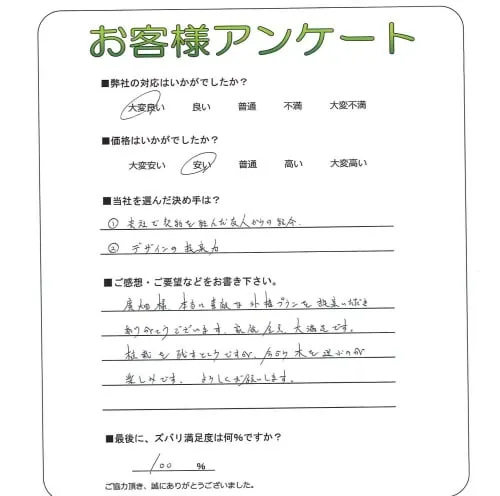 お客様アンケート
■弊社の対応はいかがでしたか？
大変良い 良い 普通 不満 大変不満
■価格はいかがでしたか？
大変安い 安い 普通 高い 大変高い
■当社を選んだ決め手は？
① 貴社で契約を結んだ友人からの紹介
② デザインの提案力
■ご感想・ご要望などをお書き下さい。
廣畑様、本当に素敵な外構プランを提案いただき
ありがとうございます。家族全員、大満足です。
植栽を残すところですが、今から木を選ぶのが
楽しみです。よろしくお願いします。
■最後に、ズバリ満足度は何％ですか？
100 ％
ご協力頂き、誠にありがとうございました。